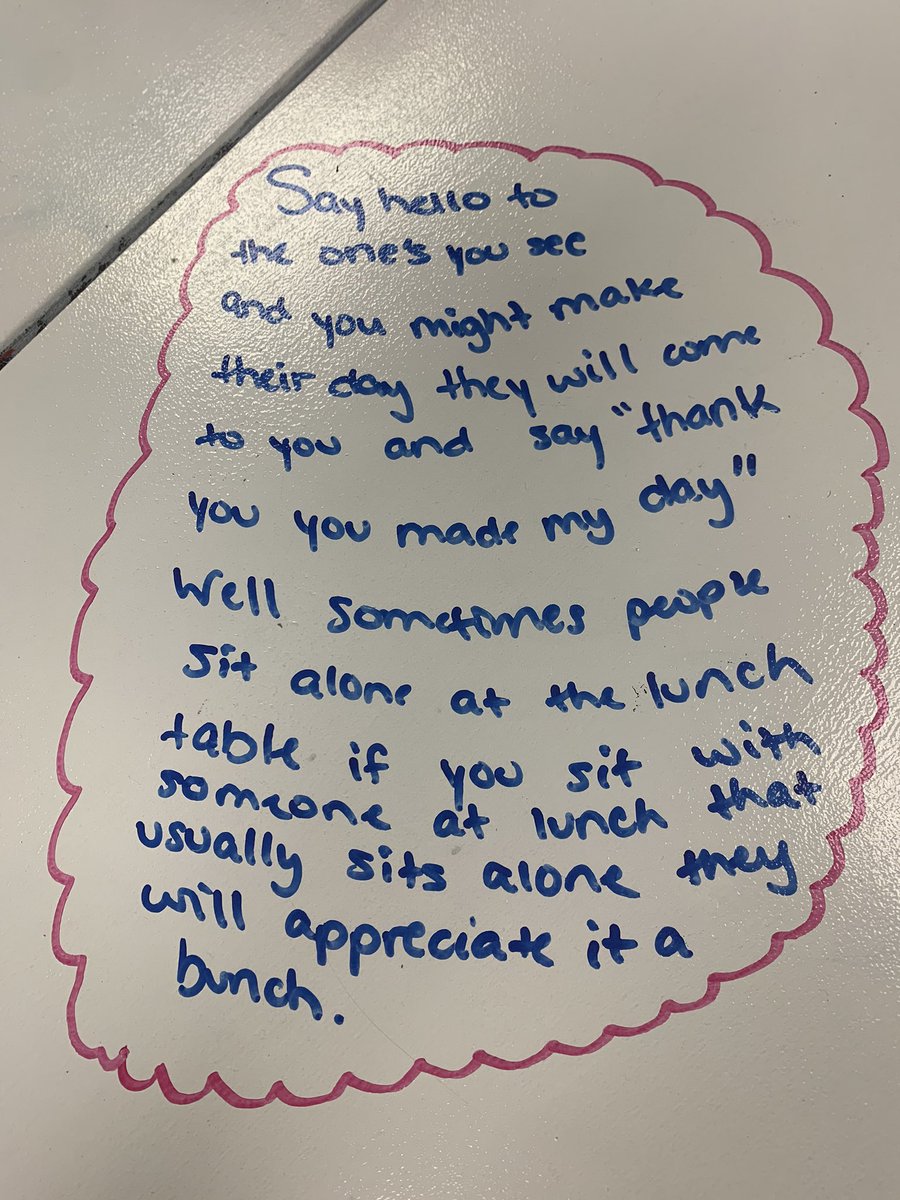 Say hello to
the one's you see
and you might make
their day they will come
to you and say "thank
you you made my day"
Well sometimes people
sit alone at the lunch
table if you sit with
someone at lunch that
usually sits alone they
will appreciate it a
bunch.